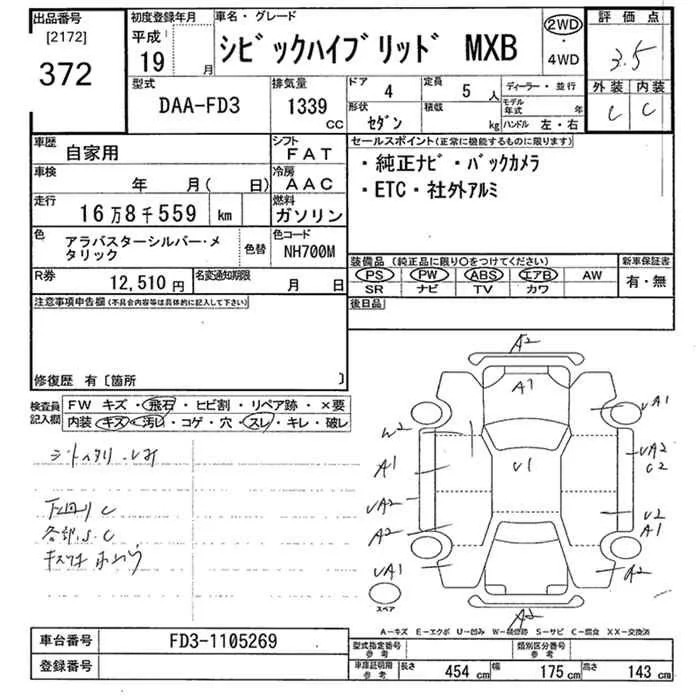 出品番号
[2172]
372
初度登録年月
平成
19 月
車名・グレード
シビックハイブリッド MXB
2WD
・
4WD
評価点
3.5
外装 内装
C C
型式
DAA-FD3
排気量
1339
CC
ドア
4
定員
5 人
ディーラー・並行
形状
セダン
積載
kg
モデル年式 年
ハンドル 左・右
車歴
自家用
シフト
FAT
車検
年 月( 日)
冷房
AAC
走行
16万8千559 km
燃料
ガソリン
色
アラバスターシルバー・メ
タリック
色替
色コード
NH700M
R券
12,510円
名変通知期限
月 日
セールスポイント(正常に機能するものに限ります)
・純正ナビ・バックカメラ
・ETC・社外アルミ
装備品 (純正品に限り○をつけてください)
PS PW ABS エアB AW
SR ナビ TV カワ
新車保証書
有・無
後日品
注意事項申告欄(不具合内容等は具体的に記入して下さい)
修復歴 有〔箇所 〕
検査員
記入欄
FW キズ・飛石・ヒビ割・リペア跡・×要
内装・キズ・汚レ・コゲ・穴・スレ・キレ・破レ
下回りC
各部S.C
A2
A1
UA1
W2
A1
U1
UA2
C2
UA2
A2
U2
A1
UA1
A2
A2
スペア
A−キズ E−エクボ U−凹み W−補修跡 S−サビ C−腐食 XX−交換済
車台番号
FD3-1105269
登録番号
型式指定番号
参考
類別区分番号
参考
車庫証明用
参考
長さ 454 cm 幅 175 cm 高さ 143 cm